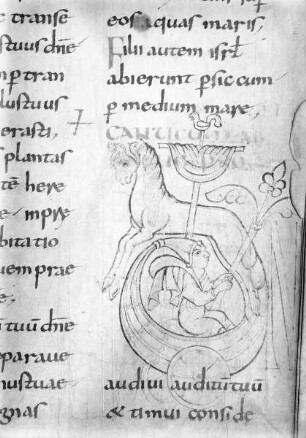 c transe
stuus dn̄e
m p̱ tran
lustuus
erasti,
plantas
tē here
bitatio
uem prae
e;
tuū dn̄e
eparaue
nustuae
gnas
eos aquas maris,
Filii autem isrł
abierunt p̱ siccum
p̱ medium mare,
CANTICUM
audiui auditū tuū
& timui conside